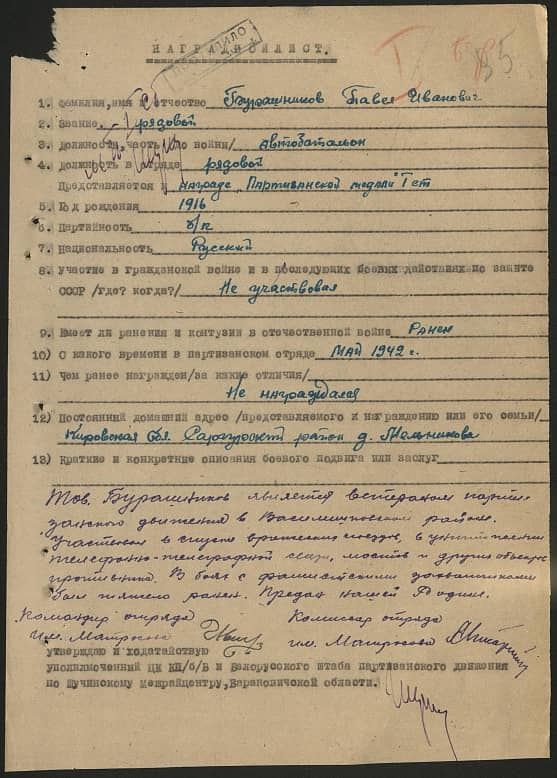 НАГРАДНОЙ ЛИСТ.
1. Фамилия, имя и отчество Бурашников Павел Иванович
2. Звание рядовой
3. Должность, часть /до войны/ Автобатальон
4. Должность в отряде рядовой
Представляется к награде „Партизанской медали" I ст
5. Год рождения 1916
6. Партийность б/п
7. Национальность Русский
8. Участие в гражданской войне и в последующих боевых действиях по защите
СССР /где? когда?/ Не участвовал
9. Имеет ли ранения и контузии в отечественной войне Ранен
10) С какого времени в партизанском отряде Май 1942 г.
11) Чем ранее награжден/за какие отличия/
Не награждался
12) Постоянный домашний адрес /представляемого к награждению или его семьи/
Кировская обл. район д. Мельникова
13) Краткие и конкретные описания боевого подвига или заслуг
Тов. Бурашников является ветераном парти-
занского движения в Василишковском районе.
Участвовал в спуске вражеских поездов, в уничтожении
телефонно-телеграфной связи, мостов и других объектов
противника. В боях с фашистскими захватчиками
был тяжело ранен. Предан нашей Родине.
Командир отряда Комиссар отряда
им. Матросова им. Матросова
утверждаю и ходатайствую
уполномоченный ЦК КП/б/Б и Белорусского штаба партизанского движения
по Щучинскому межрайцентру, Барановичской области.